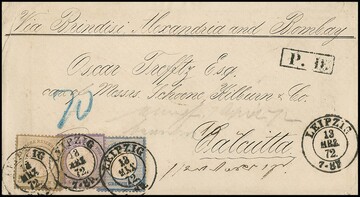 Via Brindisi Alexandria and Bombay
P. D.
Oscar Trefftz Esq.
care Messrs Schoene, Kilburn & Co.
70
Calcutta
LEIPZIG
13
MRZ.
72
LEIPZIG
13
MRZ.
72
7-8
LEIPZIG
13
72
7-8
LEIPZIG
13
MRZ.
72.
7-8